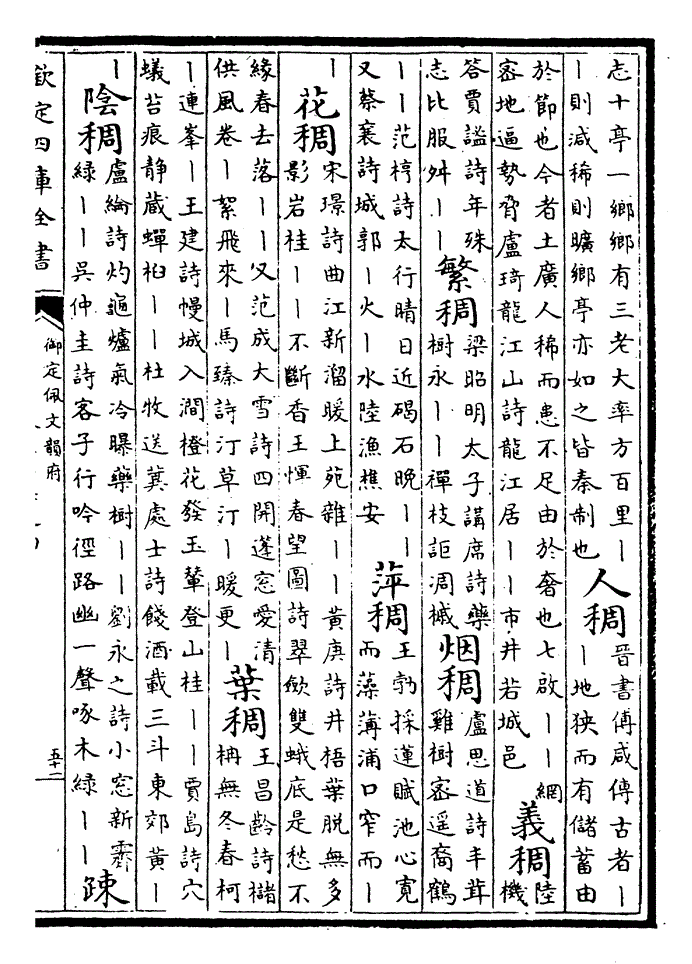 志十亭一鄉鄉有三老大率方百里丨
丨則減稀則曠鄉亭亦如之皆秦制也
人稠
晉書傅咸傳古者丨
丨地狹而有儲蓄由
於節也今者土廣人稀而患不足由於奢也七啟丨丨網
密地逼勢脅盧琦龍江山詩龍江居丨丨市井若城邑
義稠
陸
機
答賈謐詩年殊
志比服舛丨丨
繁稠
梁昭明太子講席詩藥
樹永丨丨禪枝詎凋槭
烟稠
盧思道詩丰茸
雞樹密遥裔鶴
丨丨范梈詩太行晴日近碣石晚丨丨
又蔡襄詩城郭丨火丨水陸漁樵安
萍稠
王勃採蓮賦池心寬
而藻薄浦口窄而丨
丨
花稠
宋璟詩曲江新溜暖上苑雜丨丨黄庚詩井梧葉脱無多
影岩桂丨丨不斷香王惲春望圖詩翠斂雙蛾底是愁不
緣春去落丨丨又范成大雪詩四開蓬窓愛清
供風卷丨絮飛來丨馬臻詩汀草汀丨暖更丨
葉稠
王昌齡詩櫧
柟無冬春柯
丨連峯丨王建詩幔城入澗橙花發玉輦登山桂丨丨賈島詩穴
蟻苔痕靜藏蟬柏丨丨杜牧送龔處士詩餞酒載三斗東郊黄丨
丨
陰稠
盧綸詩灼龜爐氣冷曝藥樹丨丨劉永之詩小窓新霽
綠丨丨吳仲圭詩客子行吟徑路幽一聲啄木綠丨丨
踈
欽定四庫全書
御定佩文韻府
五十二